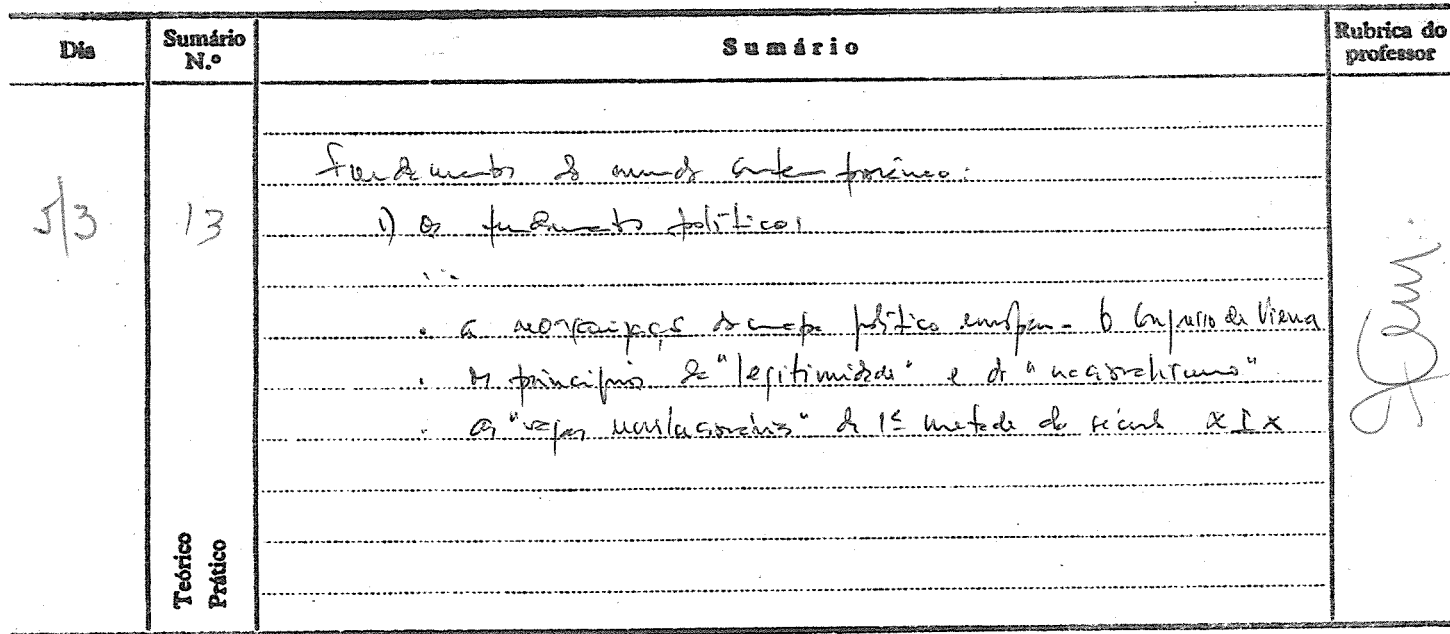 Dia
Sumário N.º
Sumário
Rubrica do professor
5/3
13
Fundamentos do mundo contemporâneo:
1) Os fundamentos políticos
...
. a reorganização do mapa político europeu - O Congresso de Viena
. os princípios da "legitimidade" e do "nacionalismo"
. as "vagas revolucionárias" da 1ª metade do século XIX
Teórico
Prático